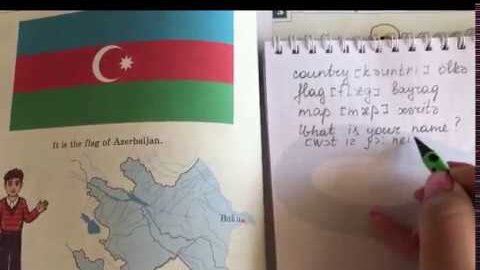 It is the flag of Azerbaijan.
Baku
country [kʌntri] ölkə
flag [flæg] bayraq
map [mæp] xəritə
What is your name?
[wɔt iz jɔ: nei